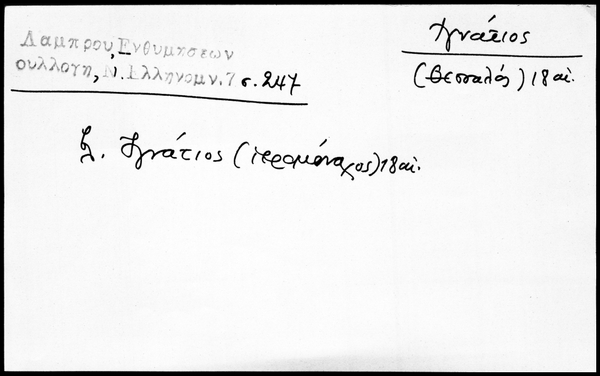 Λαμπρου, Ενθυμησεων
συλλογη, Ν. Ελληνομν. 7 σ. 247
Ἰγνάτιος
(Θεσσαλός) 18 αἰ.
βλ. Ἰγνάτιος (ἱερομόναχος) 18 αἰ.